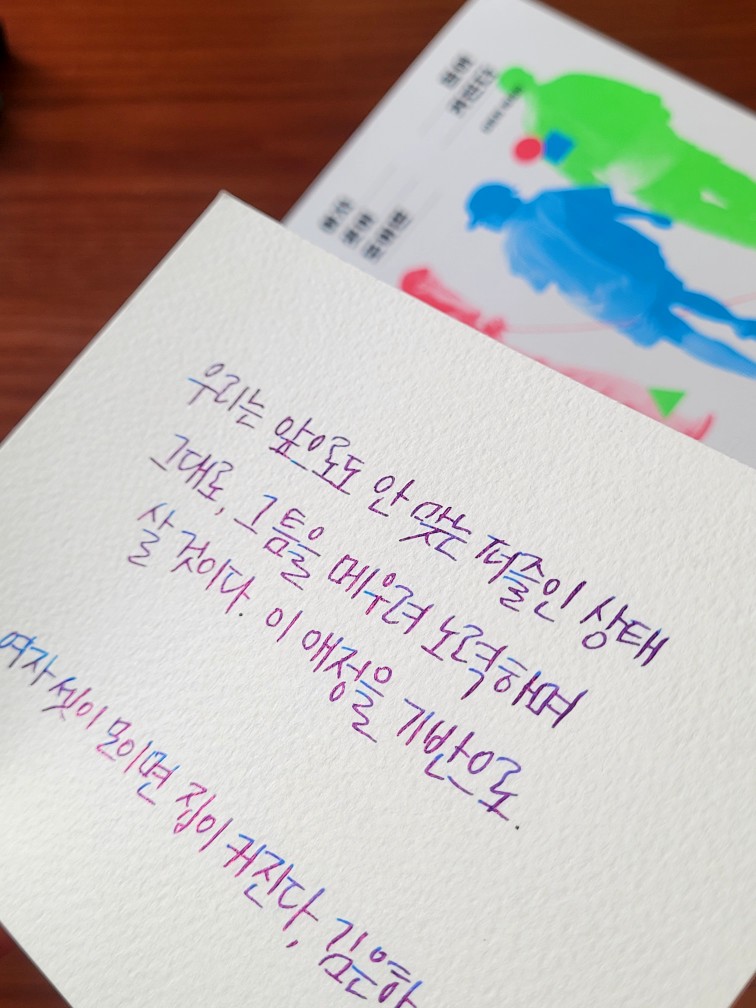 우리는 앞으로도 안 맞는 퍼즐인 상태
그대로, 그 틈을 메우려 노력하며
살 것이다. 이 애정을 기반으로.
여자 셋이 모이면 집이 커진다,